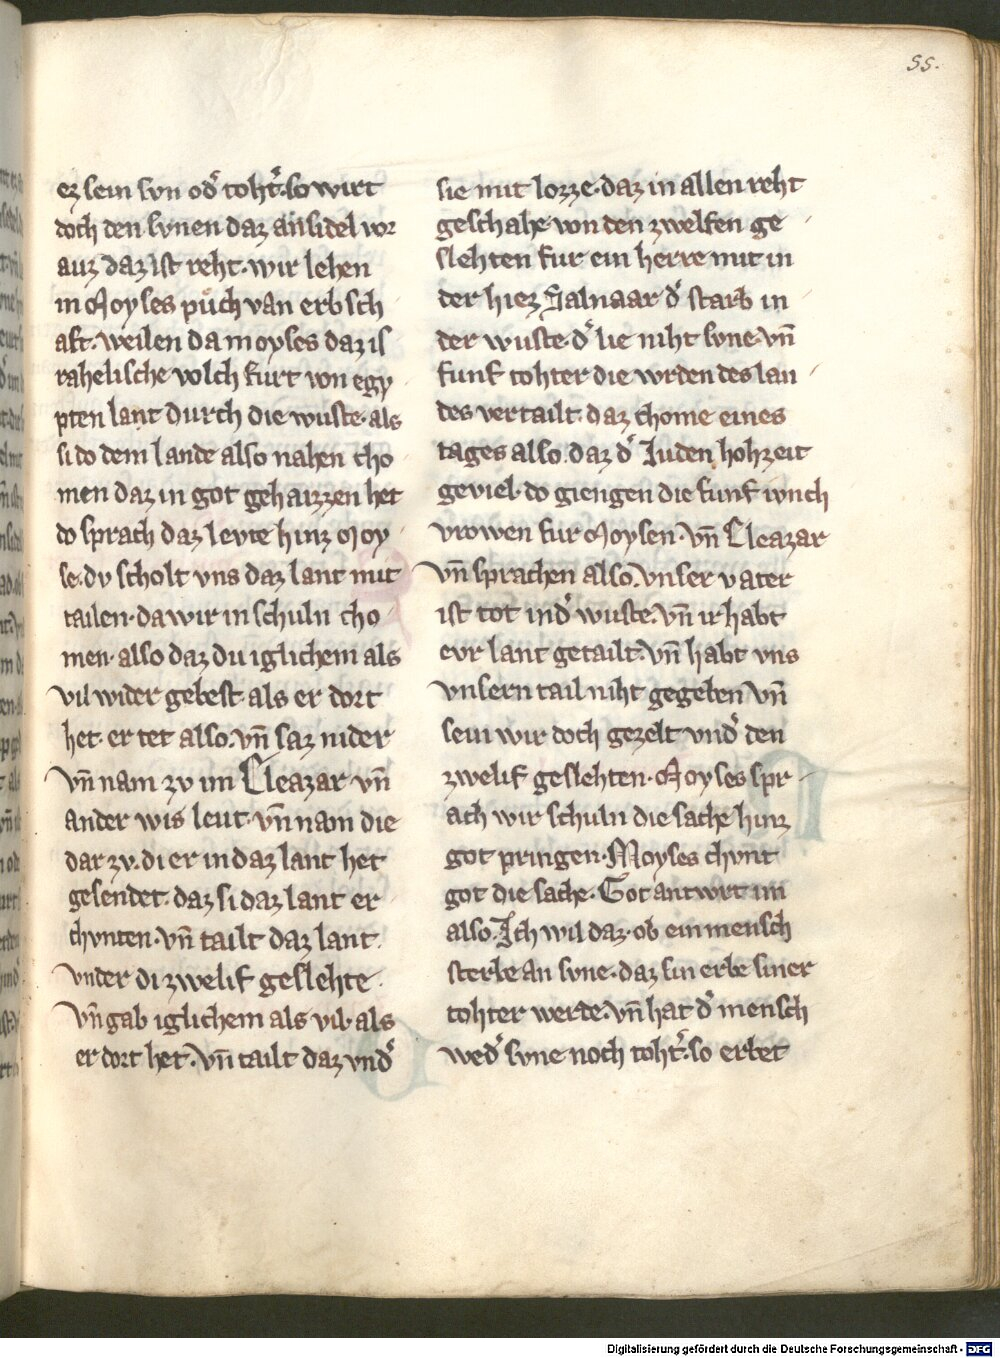 55.
ez sein svn od͛ toht͛. so wirt
doch den svnen daz ansidel vor
auz daz ist reht. wir lesen
in Moyses půch van erbsch
aft. weilen da moyses daz is
rahelische volch furt von egy
pten lant durch die wuste. als
si do dem lande also nahen cho
men daz in got gehaizzen het
do sprach daz levte hinz Moy
se. dv scholt vns daz lant mit
tailen. da wir in schuln cho
men. also daz du iglichem als
vil wider gebest. als er dort
het. er tet also. vn̄ saz nider
vn̄ nam zv im Eleazar vn̄
ander wis leut. vn̄ nam die
dar zv. di er in daz lant het
gesendet. daz si daz lant er
chvnten. vn̄ tailt daz lant.
vnder di zwelif geslehte.
vn̄ gab iglichem als vil. als
er dort het. vn̄ tailt daz vnd͛
sie mit lozze. daz in allen reht
geschahe. von den zwelfen ge
slehten fur ein herre mit in
der hiez Salnaar. d͛ starb in
der wuste. d͛ lie niht svne. vn̄
funf tohter die wrden des lan
des vertailt. daz chome eines
tages also. daz d͛ Juden hohzeit
geviel. do giengen die funf ivnch
vrowen fur Moysen. vn̄ Eleazar
vn̄ sprachen also. vnser vater
ist tot in d͛ wuste. vn̄ ir habt
evr lant getailt. vn̄ habt vns
vnsern tail niht gegeben vn̄
sein wir doch gezelt vnd͛ den
zwelif geslehten. Moyses spr
ach wir schuln die sache hinz
got pringen. Moyses chvnt
got die sache. Got antwrt im
also. Ich wil daz. ob ein mensch
sterbe an svne. daz sin erbe siner
tohter werde. vn̄ hat d͛ mensch
wed͛ svne noch toht͛. so erbet
Digitalisierung gefördert durch die Deutsche Forschungsgemeinschaft - DFG